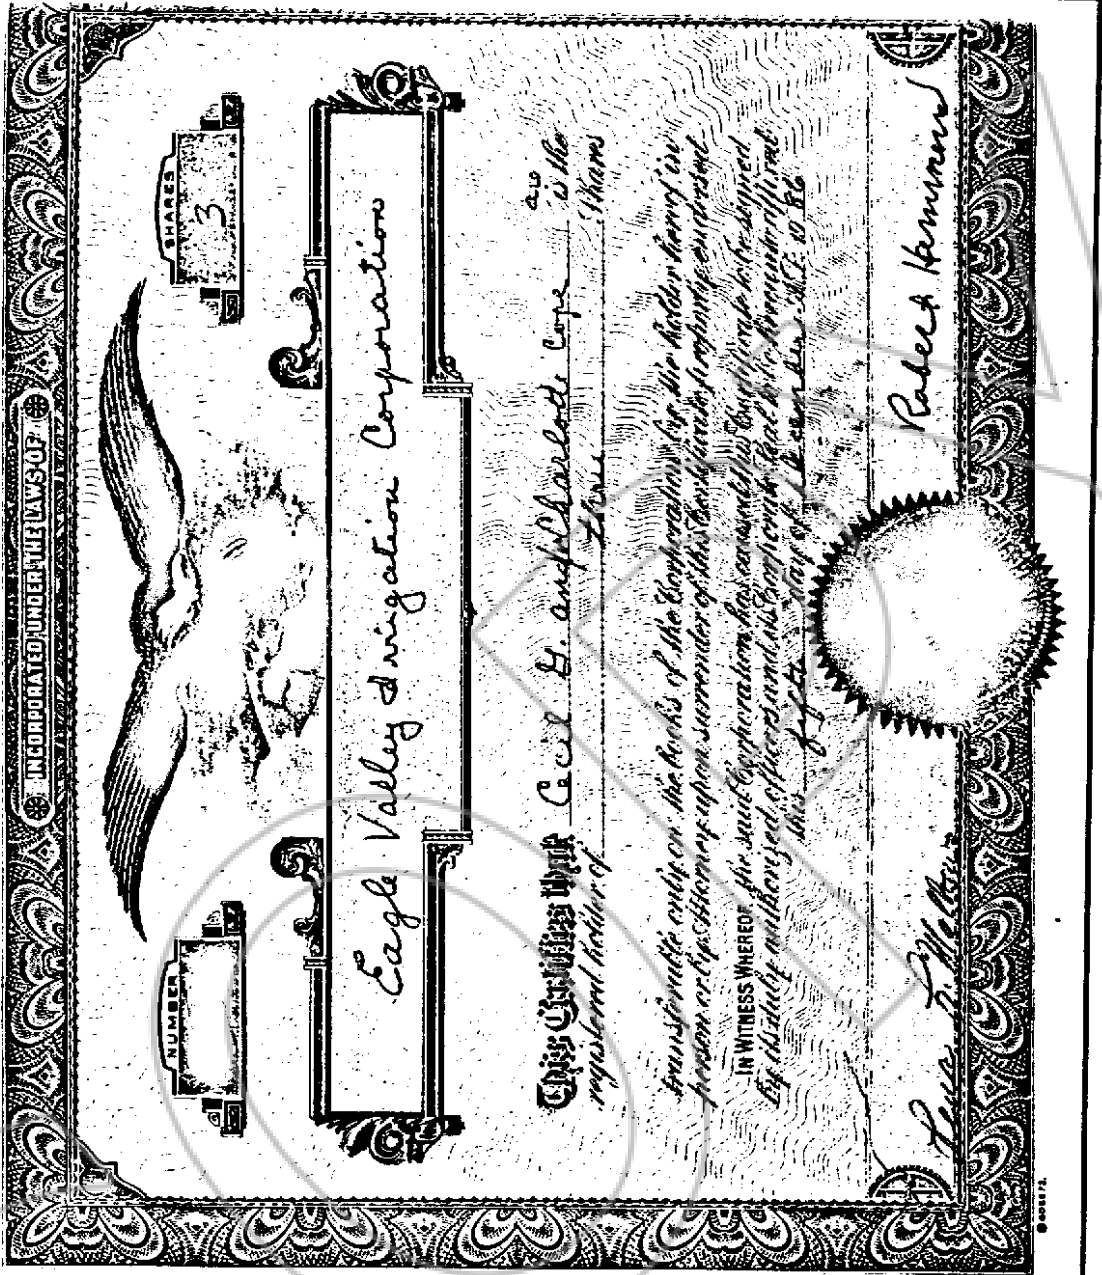 INCORPORATED UNDER THE LAWS OF
NUMBER
SHARES
3
Eagle Valley Irrigation Corporation
This Certifies that Cecil G. and Charlode Cope is the
registered holder of Three Shares
transferable only on the books of the Corporation by the holder hereof in
person or by Attorney upon surrender of this Certificate properly endorsed.
IN WITNESS WHEREOF, the said Corporation has caused this Certificate to be signed
by its duly authorized officers and its Corporate Seal to be hereunto affixed
this fifth day of December A.D. 1986
Robert Hammond